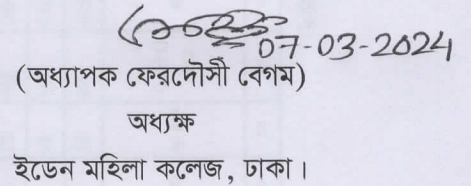 07-03-2024
(অধ্যাপক ফেরদৌসী বেগম)
অধ্যক্ষ
ইডেন মহিলা কলেজ, ঢাকা।